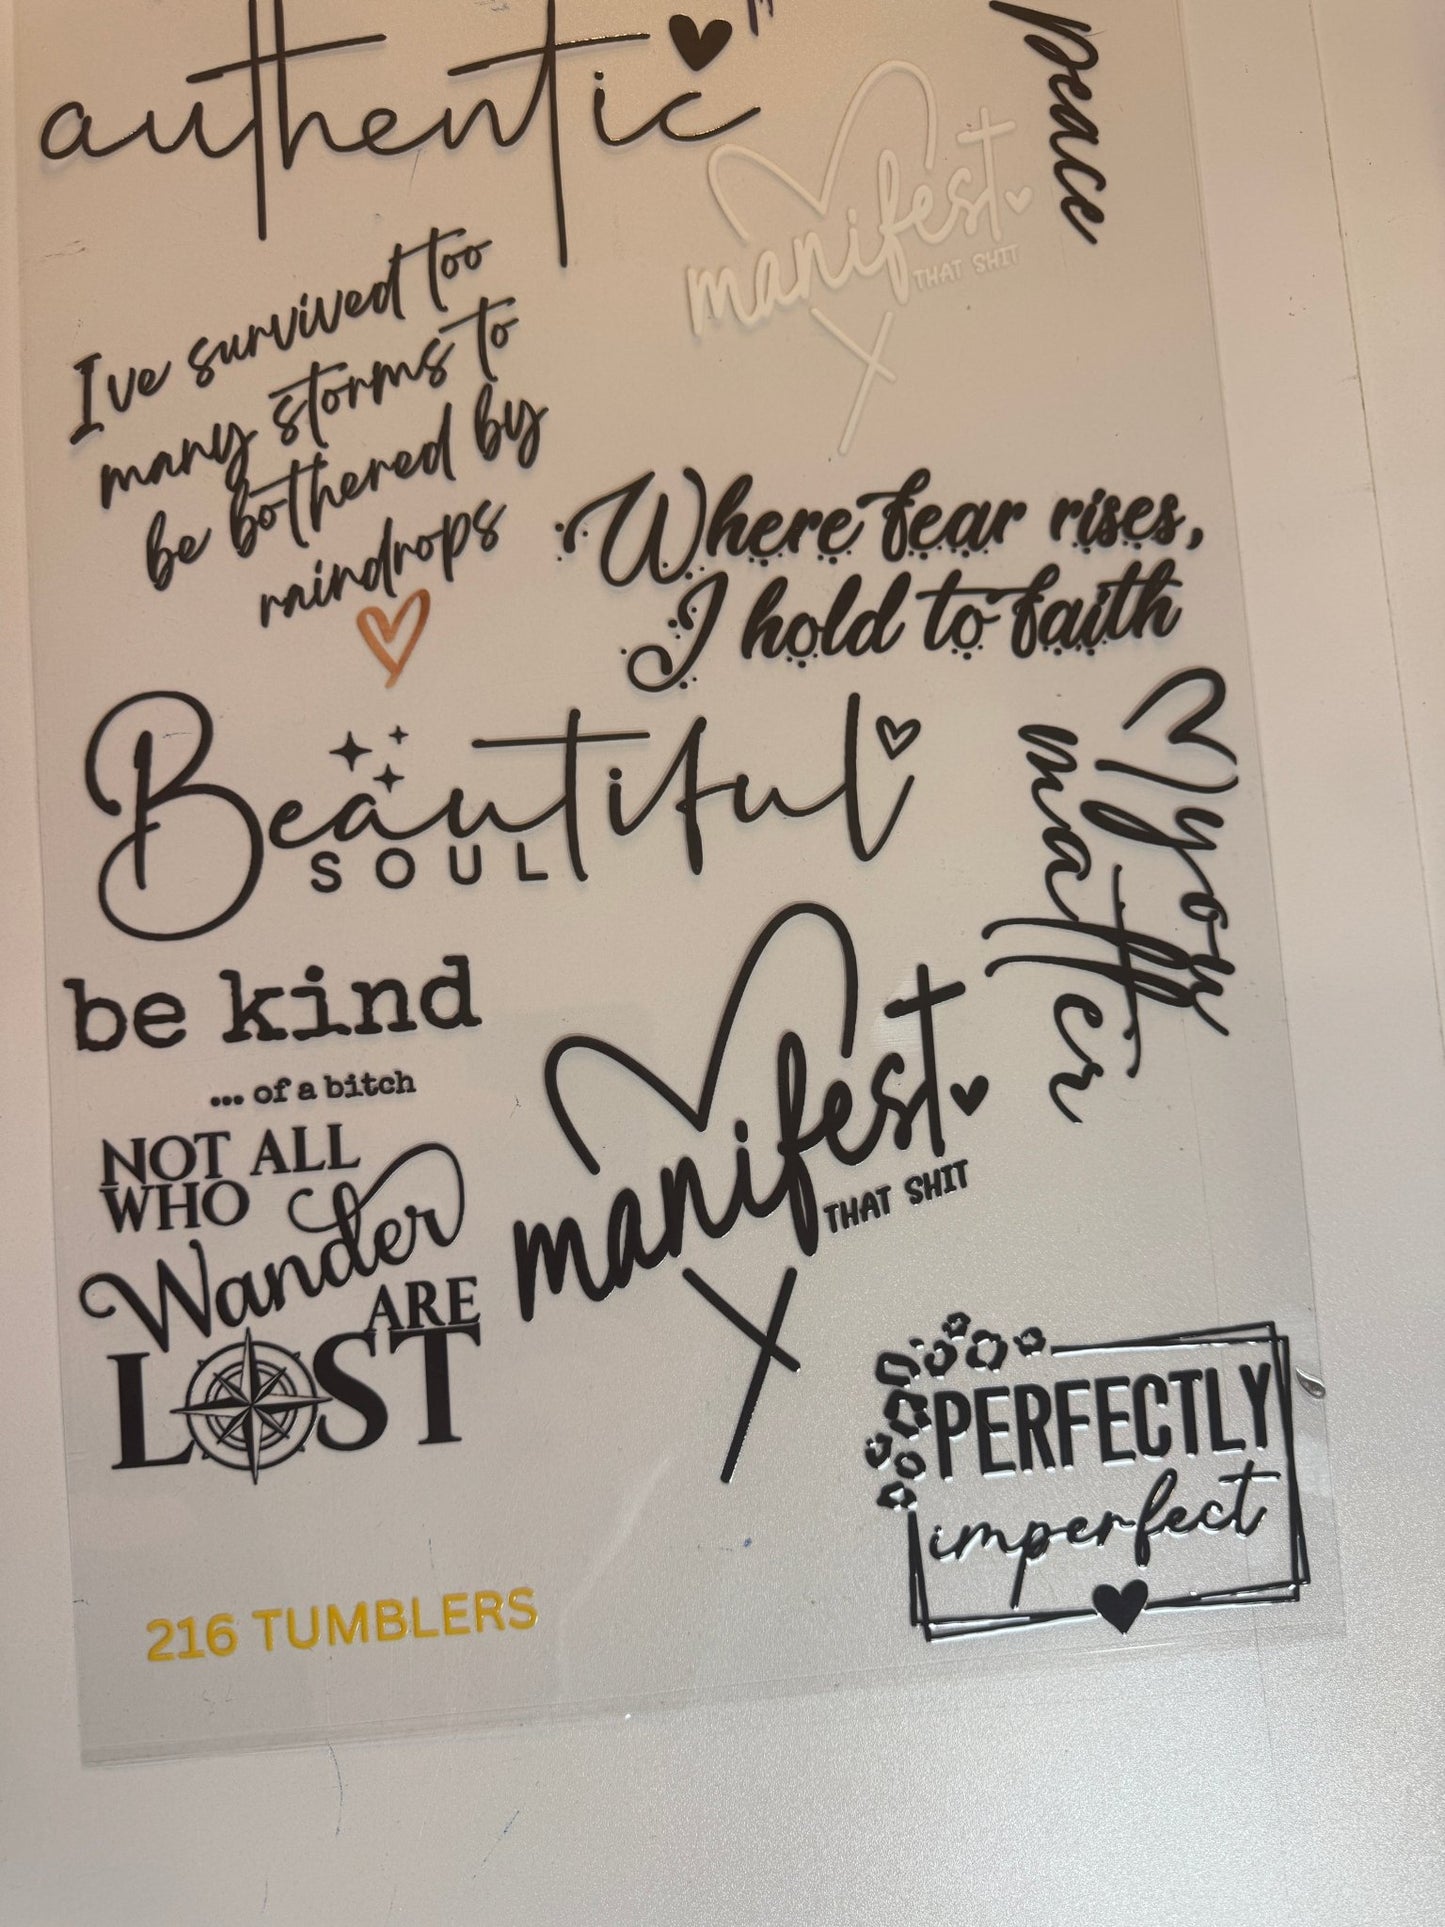 authentic
peace
manifest
THAT SHIT
I've survived too
many storms to
be bothered by
raindrops
Where fear rises,
I hold to faith
Beautiful
SOUL
you
matter
be kind
... of a bitch
manifest
THAT SHIT
NOT ALL
WHO
Wander
ARE
LOST
PERFECTLY
imperfect
216 TUMBLERS